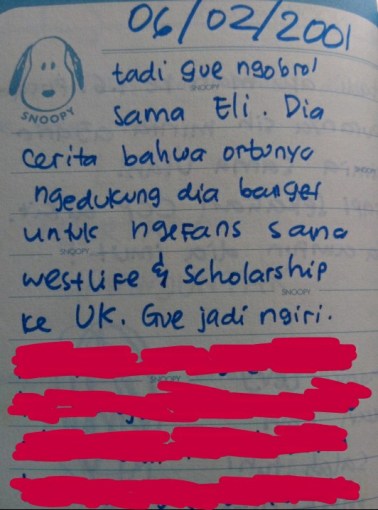 06/02/2001
SNOOPY
tadi gue ngobrol
SNOOPY
sama Eli. Dia
cerita bahwa ortunya
SNOOPY
ngedukung dia banget
untuk ngefans sama
SNOOPY
westlife & scholarship
SNOOPY
ke UK. Gue jadi ngiri.
SNOOPY